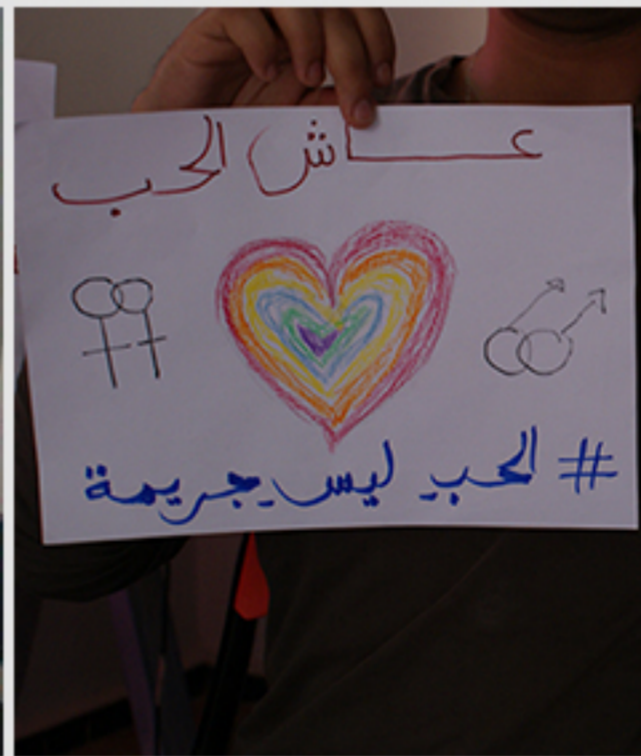 عاش الحب
# الحب ليس جريمة